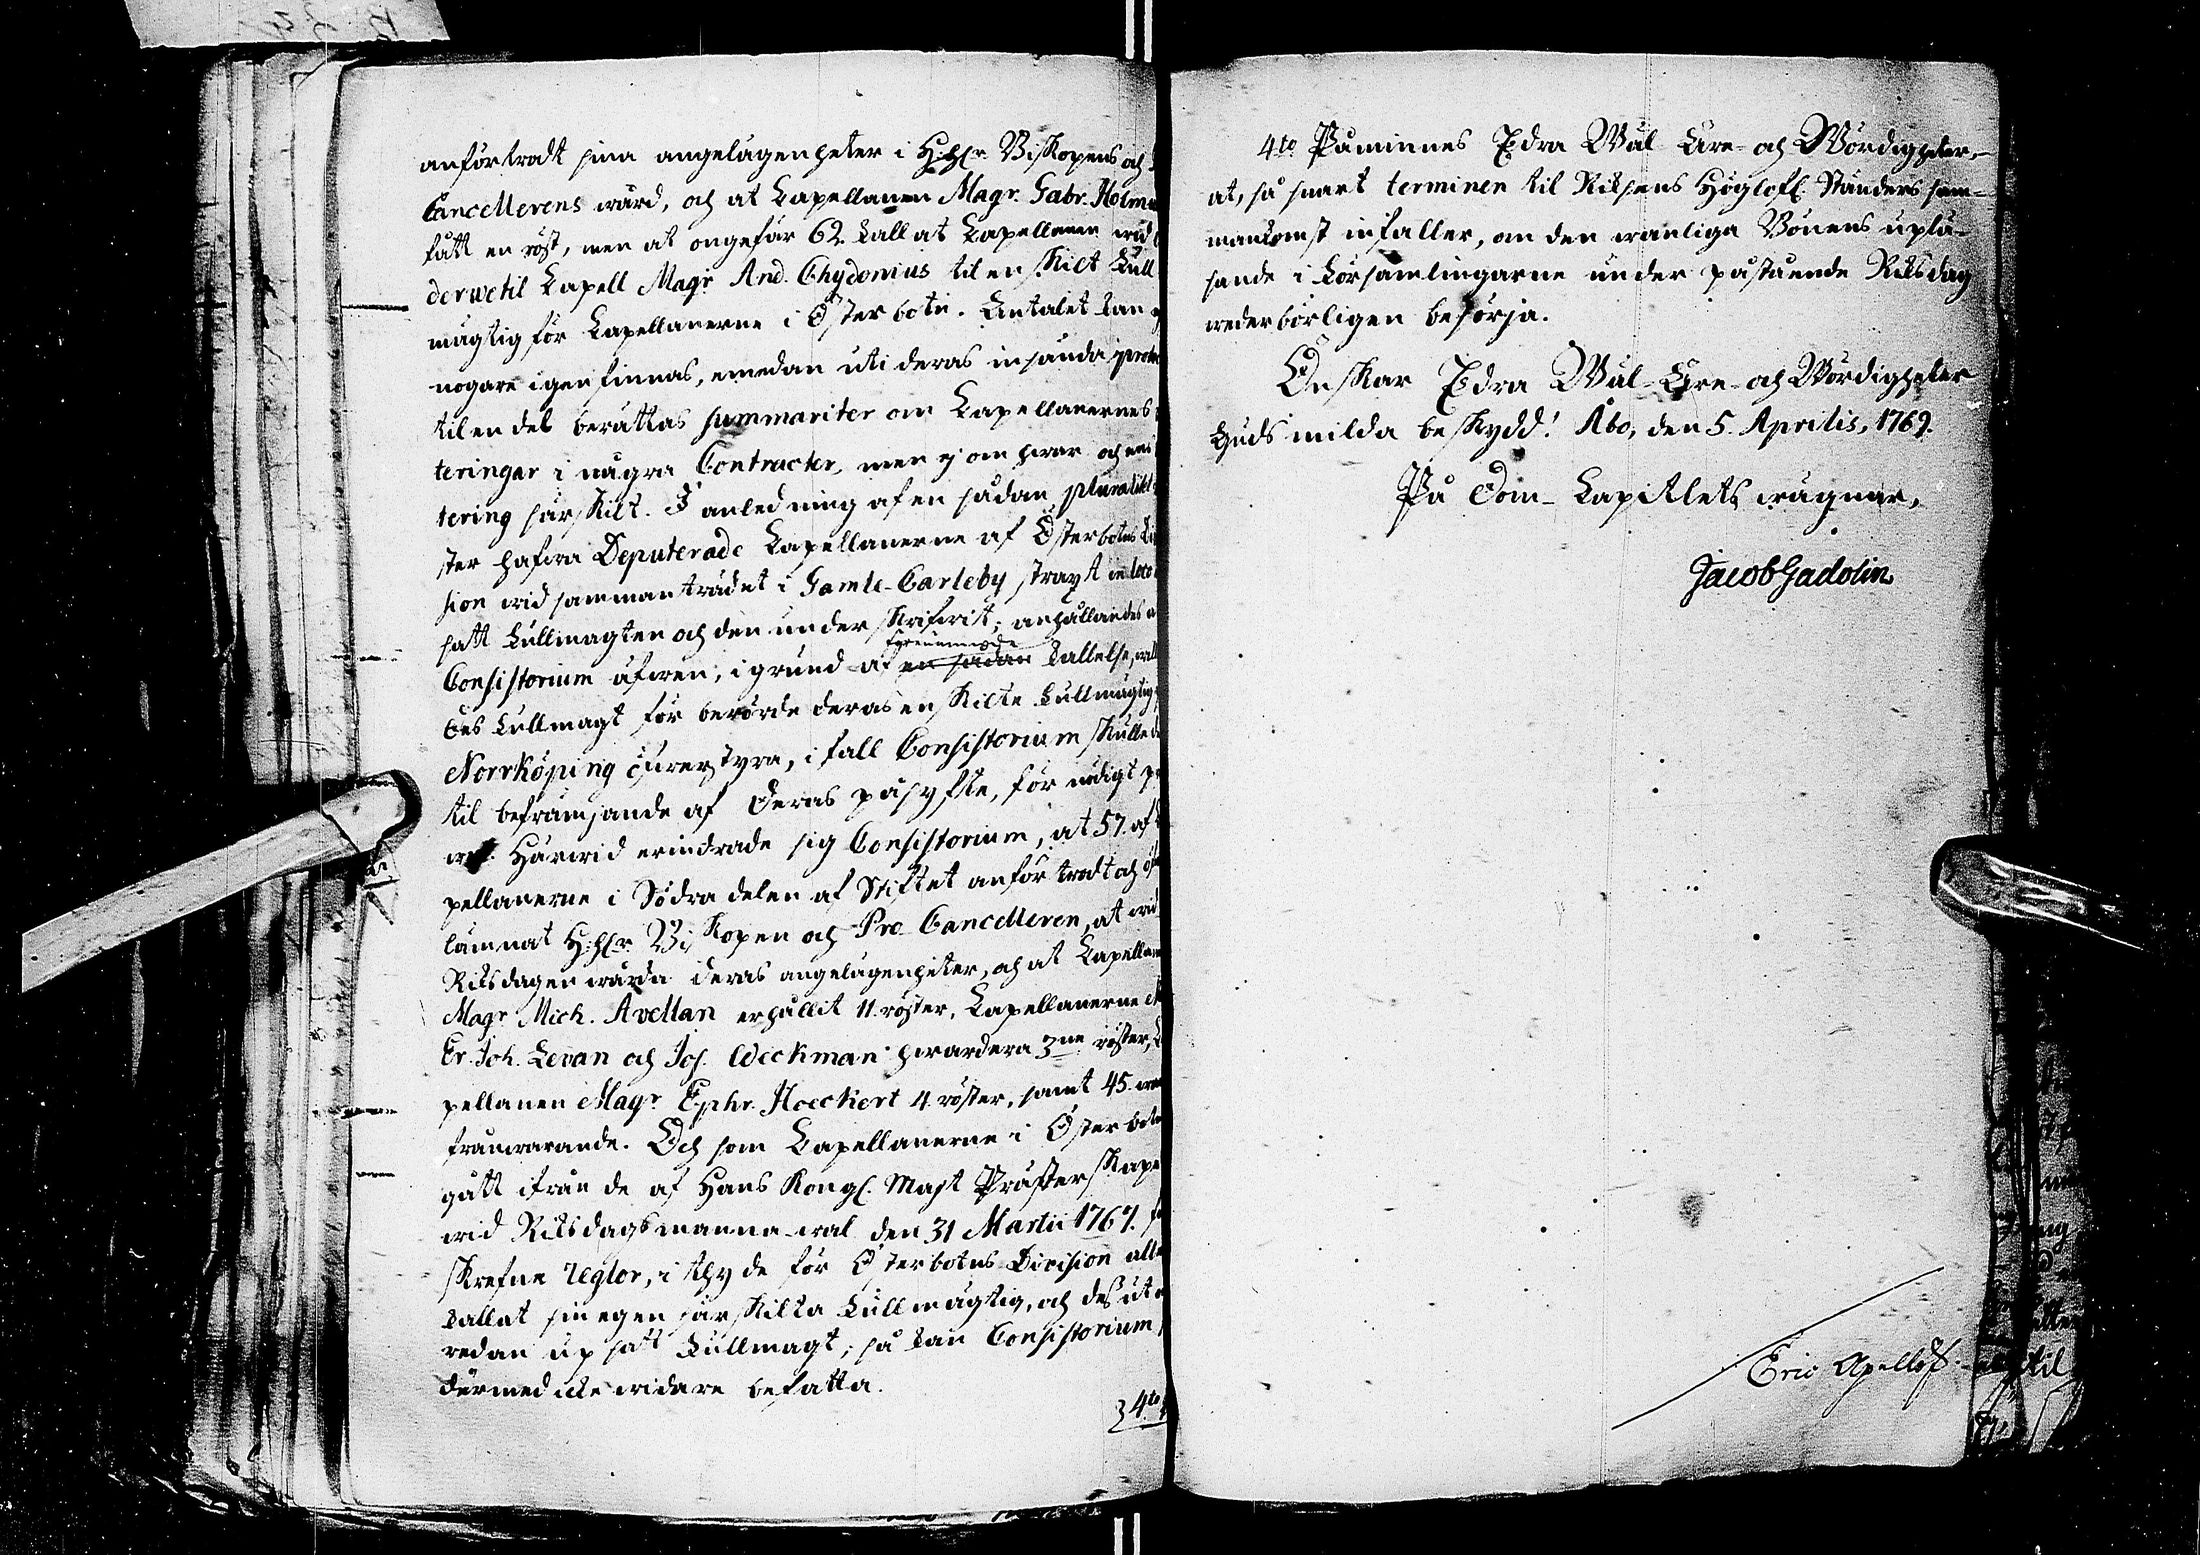 anförtrodt sina angelägenheter i H:hr Biskopens och
Cancellerens wård, och at Capellanen Magr. Gabr. Holm
fått en röst, men at ongefär 62. kallat Capellanen wid
derwetil Capell Magr. And. Chydenius til en skilt Full
mägtig för Capellanerne i Österbotn. Antalet kan
nogare igenfinnas, emedan uti deras insända
til en del berättas summariter om Capellanernes
teringar i några Contracter, men ej om hwar och en
tering särskilt. I anledning af en sådan pluralitet
ster hafwa Deputerade Capellanerne af Österbotns
sion wid sammanträdet i Gamle-Carleby straxt in loco
satt Fullmagten och den underskrifwit; anhållandes
Consistorium äfwen, i grund af en sådan förenämnde kallelse,
des Fullmagt för berörde deras enskilte Fullmägtig
Norrköping öfwerstyra, i fall Consistorium skulle
til befrämjande af deras påsyfte, för nödigt
Härwid erindrade sig Consistorium, at 57. af
pellanerne i Södra delen af Stiftet anförtrodt och
lämnat H:hr Biskopen och Pro-Cancelleren, at wid
Riksdagen wårda deras angelägenheter, och at Capellan
Magr Mich. Avellan erhållit 11. röster, Capellanerne
Er. Joh. Levan och Jos. Weckman hwardera 3ne röster,
pellanen Magr. Ephr. Hoeckert 4. röster, samt 45.
frånwarande. Och som Capellanerne i Österbotn
gått ifrån de af Hans Kongl. Majt Prästerskapet
wid Riksdagsmanna-wal den 31 Martii 1767.
skrefne reglor, i thy de för Österbotns Division
kallat sin egen särskilta Fullmägtig, och desutom
redan upsatt Fullmagt; så kan Consistorium
därmed icke widare befatta.
4to
4to Påminnes Edra Wäl-Äre- och Wördigheter,
at, så snart terminen til Riksens Höglofl. Ständers sam-
mankomst infaller, om den wanliga Bönens uplä-
sande i Församlingarne under påstående Riksdag
wederbörligen besörja.
Önskar Edra Wäl-Äre- och Wördigheter
Guds milda beskydd! Åbo, den 5. Aprilis, 1769.
På Dom-Capitlets wägnar,
Jacob Gadolin
Eric Apellöf